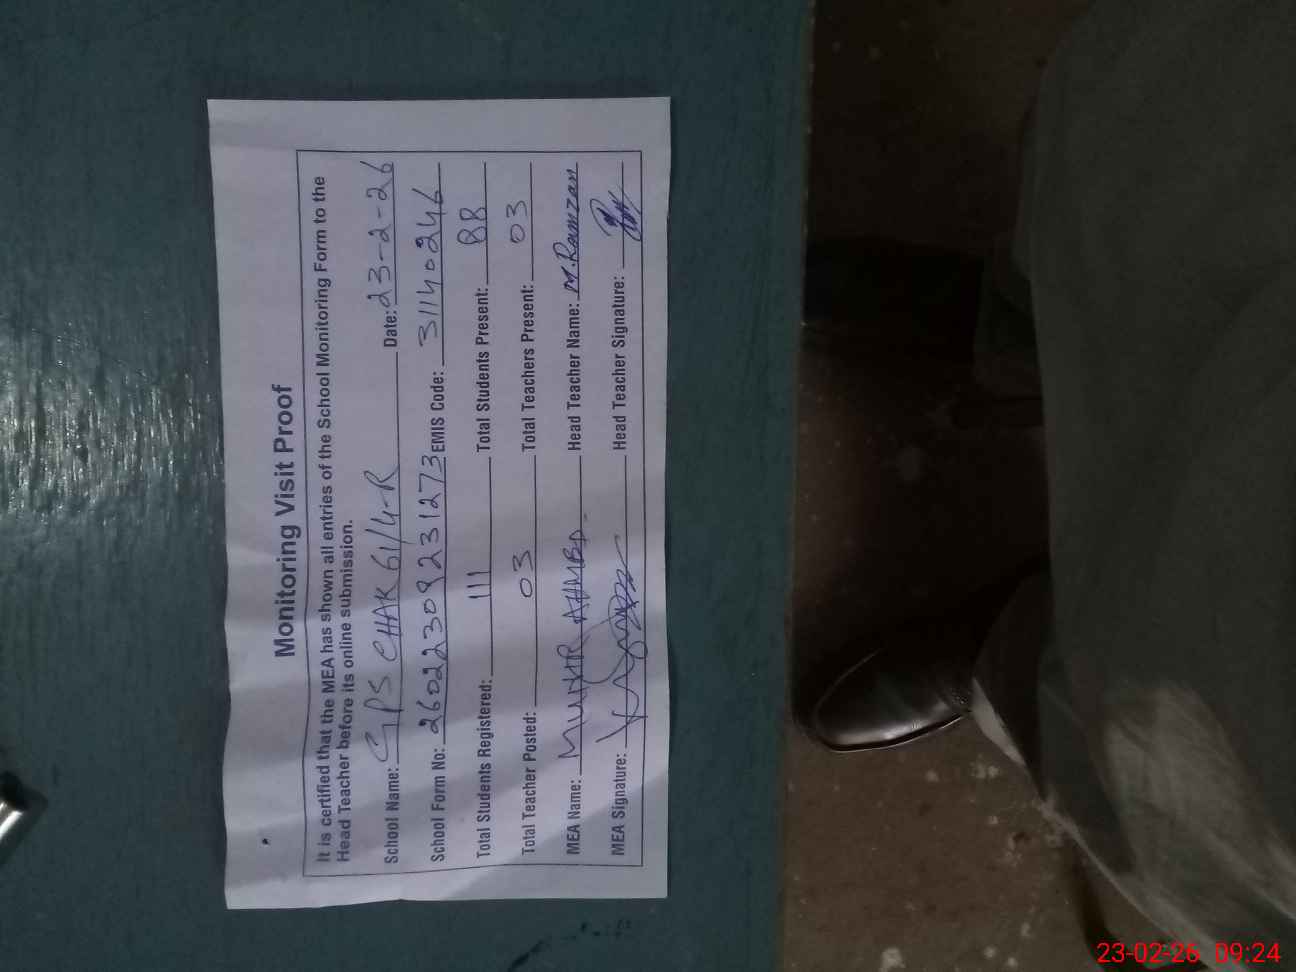 Monitoring Visit Proof
It is certified that the MEA has shown all entries of the School Monitoring Form to the
Head Teacher before its online submission.
School Name: GPS CHAK 61/4-R Date: 23-2-26
School Form No: 26022309231273 EMIS Code: 31140246
Total Students Registered: 111 Total Students Present: 88
Total Teacher Posted: 03 Total Teachers Present: 03
MEA Name: AHMED Head Teacher Name: M.Ramzan
MEA Signature: Head Teacher Signature:
23-02-26 09:24